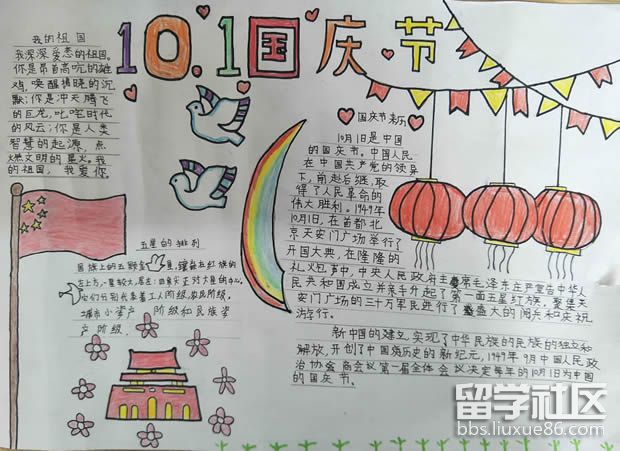 10.1国庆节
我的祖国
我深深爱恋的祖国。
你是昂首高吭的雄
鸡,唤醒拂晓的沉
默;你是冲天腾飞
的巨龙,叱咤时代
的风云;你是人类
智慧的起源,点
燃文明的星火。我
的祖国,我爱你。
国庆节来历
10月1日是中国
的国庆节。中国人民
在中国共产党的领导
下,前赴后继,取
得了人民革命的
伟大胜利。1949年
10月1日,在首都北
京天安门广场举行了
开国大典,在隆隆的
礼炮声中,中央人民政府主席毛泽东庄严宣告中华人
民共和国成立并亲手升起了第一面五星红旗。聚集天
安门广场的三十万军民进行了盛大的阅兵和庆祝
游行。
新中国的建立,实现了中华民族的民族的独立和
解放,开创了中国历史的新纪元,1949年9月中国人民政
治协商会议第一届全体会议决定每年的10月1日为中国
的国庆节。
五星的排列
国旗上的五颗星,镶嵌在红旗的
左上方,一星较大,居左;四星
它们分别代表着工人阶级,农民阶级,
城市小资产阶级和民族资
产阶级.
留学社区
bbs.liuxue86.com